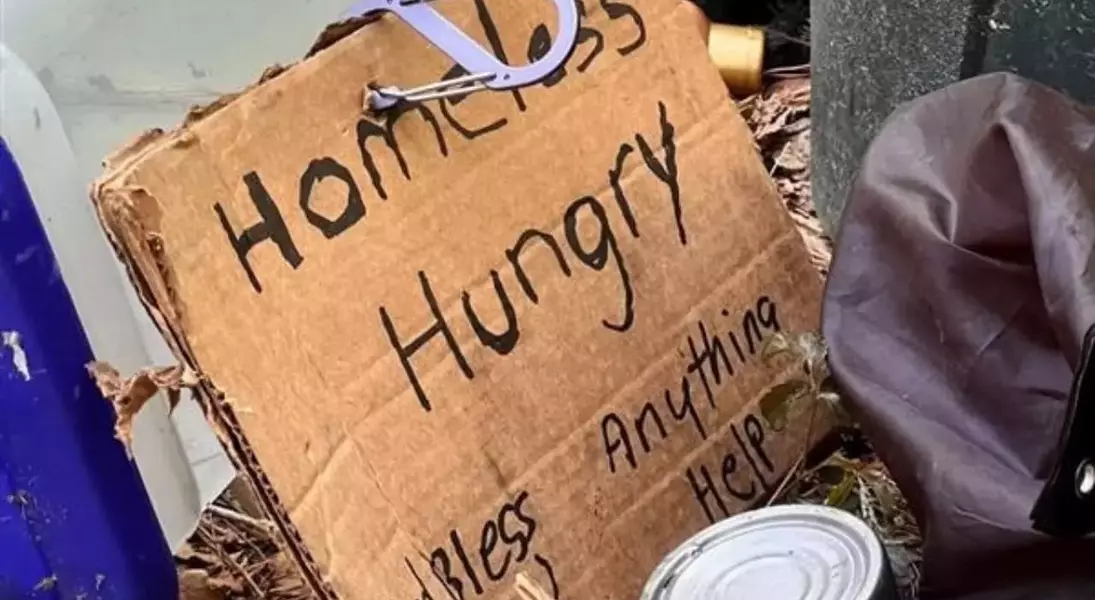 Homeless
Hungry
Anything
Help
Bless